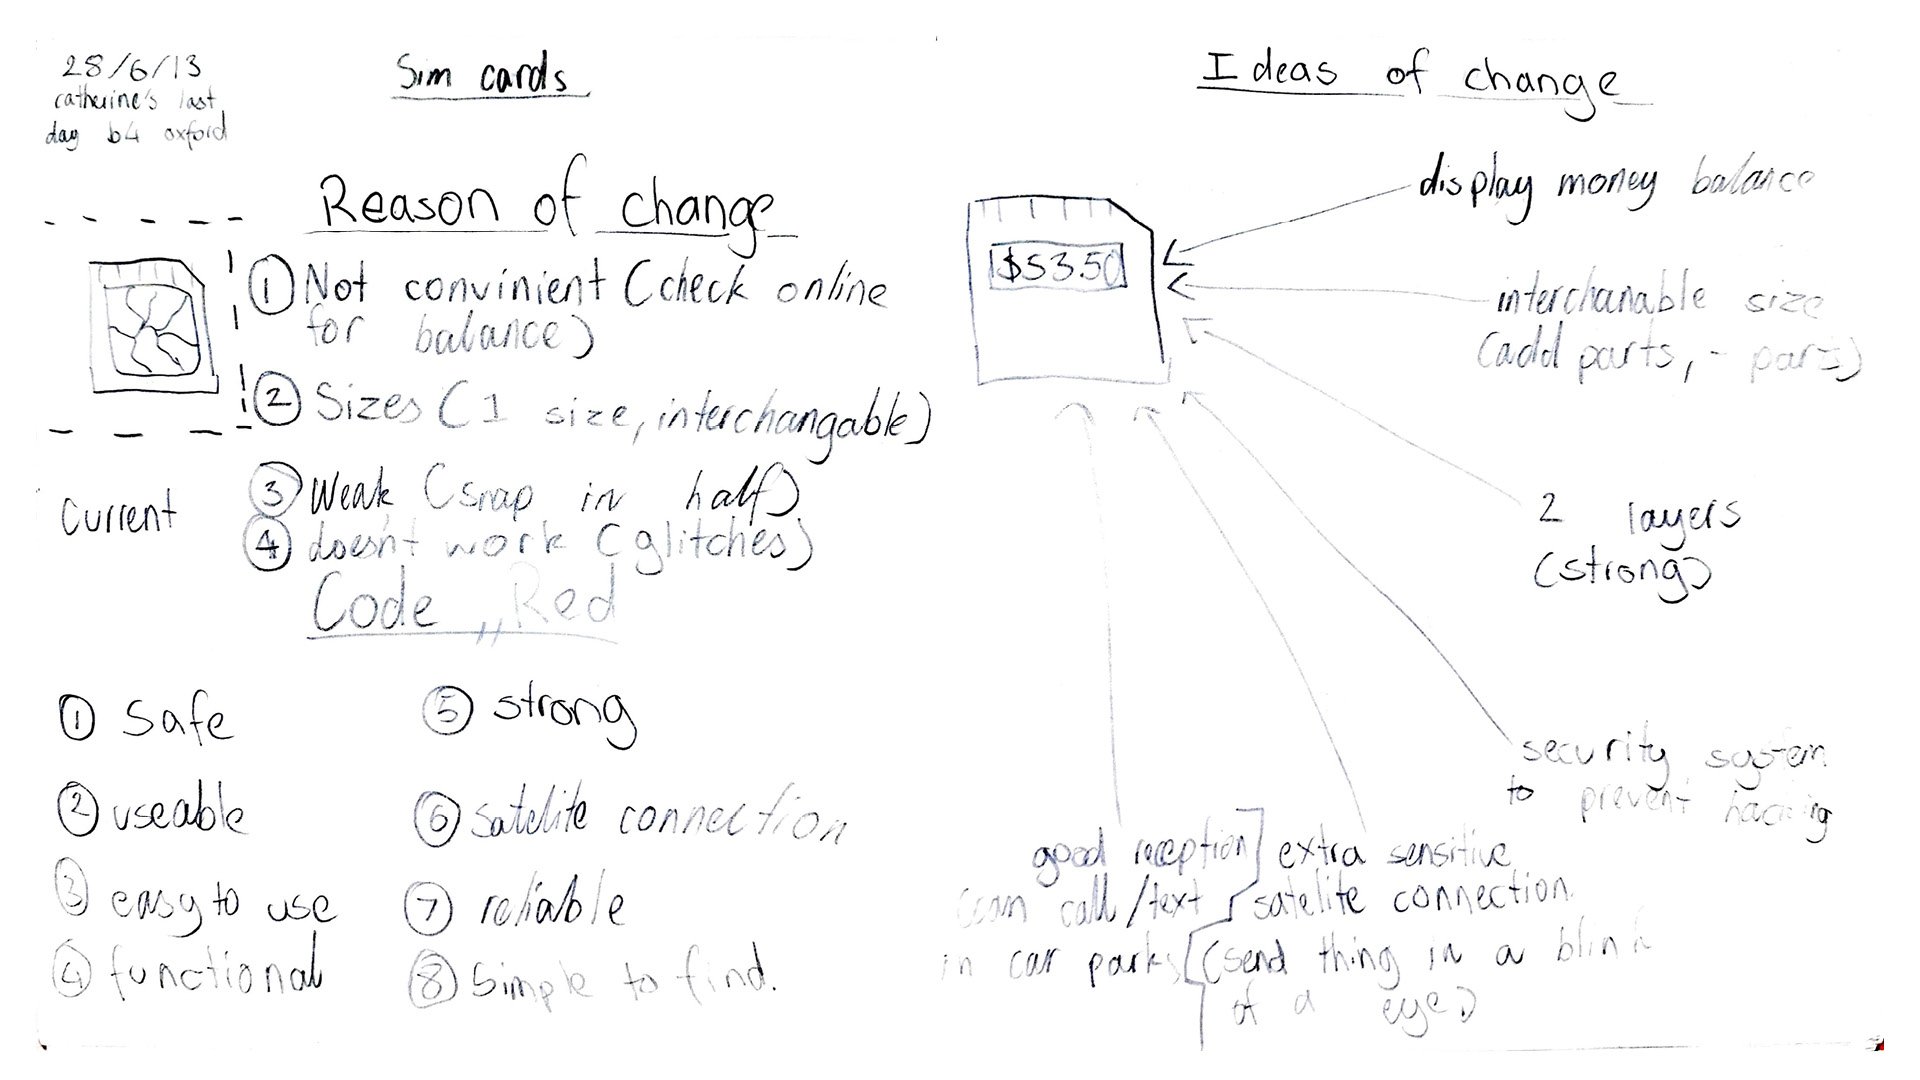 28/6/13
catherine's last
day b4 oxford
Sim cards
Reason of change
① Not convinient (check online
for balance)
② Sizes (1 size, interchangable)
③ Weak (snap in half)
④ doesn't work (glitches)
Current
Code „Red
① Safe
② useable
③ easy to use
④ functional
⑤ strong
⑥ satelite connection
⑦ reliable
⑧ Simple to find.
Ideas of change
$53.50
display money balance
interchanable size
(add parts, - parts)
2 layers
(strong)
security system
to prevent hacking
good reception
(can call/text
in car parks
extra sensitive
satelite connection.
(send thing in a blink
of a eye)